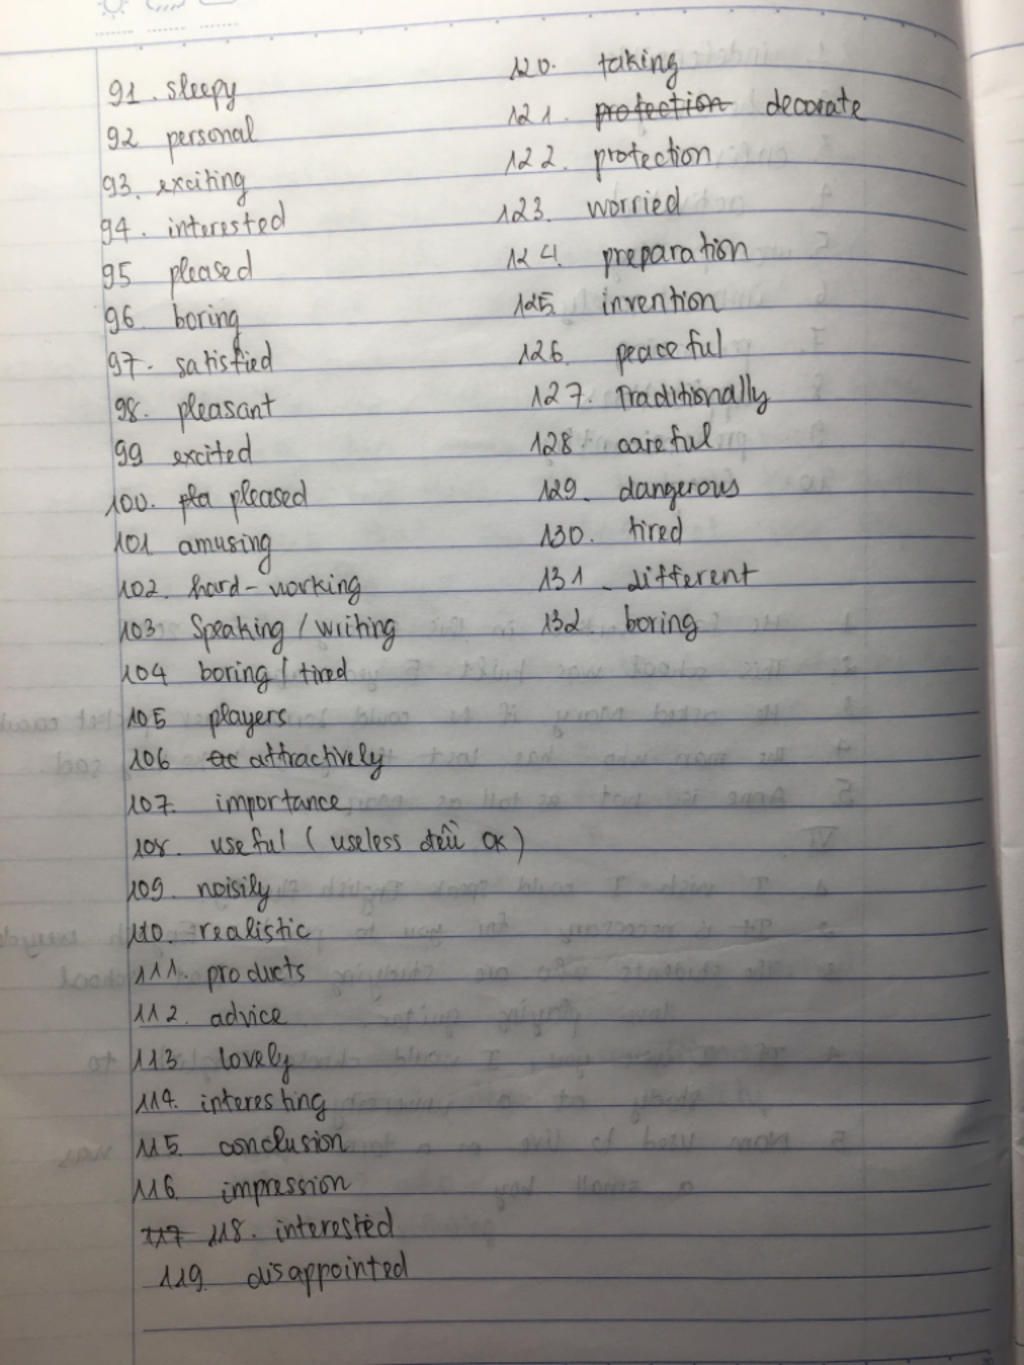 91. sleepy
92 personal
93. exciting
94. interested
95 pleased
96 boring
97. satisfied
98. pleasant
99 excited
100. pla pleased
101 amusing
102. hard-working
103 Speaking / writing
104 boring / tired
105 players
106 ac attractively
107. importance
108. useful ( useless đều ok )
109. noisily
110. realistic
111. products
112. advice
113. lovely
114. interesting
115. conclusion
116 impression
117 118. interested
119. disappointed
120. taking
121. protection decorate
122. protection
123. worried
124. preparation
125. invention
126. peaceful
127. Traditionally
128. careful
129. dangerous
130. tired
131. different
132. boring